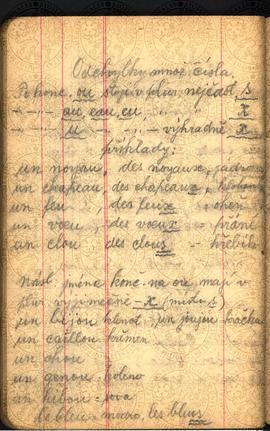 Odchylky množ. čísla.
Po kone. ou stojí v plur. nejčast. s
au, eau, eu, x
u výhradně x
příklady:
un noyau, des noyaux, jádro
un chapeau, des chapeaux, klobouk
un feu, des feux - oheň
un voeu, des voeux - přání
un clou des clous - hřebík
Násl. jména konč. na ou, mají v
plur. výjimečně - x (místo s)
un bijou klenot, un joujou hračka
un caillou křemen
un chou
un genou koleno
un hibou sova
le bleu - modro, les bleus